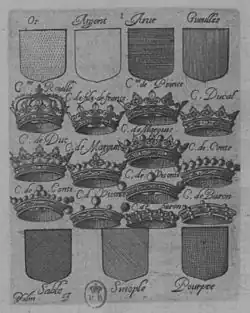 Or Argent 1 Azur Gueulles
C. Royalle C. de fils de france C. de Prince C. Ducal
C. de Duc C. de Marquis C. de Marquis C. de Conte
C. de Conte C. de Vicomte C. de Baron
C. Vicomte C. Baron
Sable Sinople Pourpre